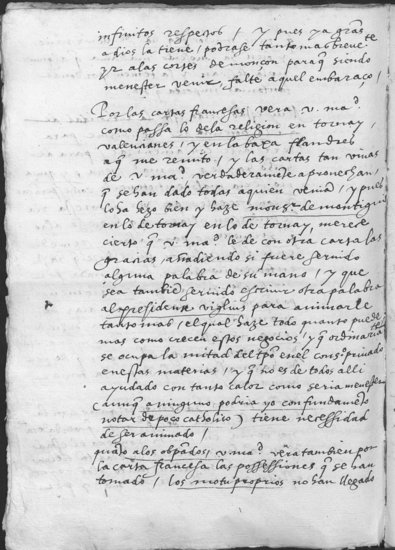 infinitos respetos / y pues ya gras
a dios la tiene / podrase tanto mas breuete
yr a las cortes de monçon paraq̃ siendo
menester venir, falte aquel embaraço /
Por las cartas francesas vera v. mad
como passa lo de la religion en tornay,
valencianes, y en la baxa flandres
a q̃ me remito, y las cartas tan viuas
de v mad verdaderamẽte aprouechan,
q̃ se han dado todas a quien venia, y pues
lo ha hecho bien y haze monsr de montigni
en lo de tornay en lo de tornay, merece
cierto q̃ v mad le de con otra carta las
gracias, añadiendo si fuere seruido
alguna palabra de su mano / y que
sea tambiẽ seruido escriuir otra palabra
al presidente viglius para animarle
tanto mas / el qual haze todo quanto puede
mas como crecen estos negocios / y q̃ ordinariate
se ocupa la mitad del tpo en el consº priuado
en estas materias / y q̃ no es de todos alli
ayudado con tanto calor como seria menester
(aunq̃ a ninguno podria yo con fundamẽto
notar de poco catholico) tiene necessidad
de ser animado /
quãto a los obpados / v mad vera tambien por
la carta francesa las possessiones q̃ se han
tomado / los motu proprios no han llegado